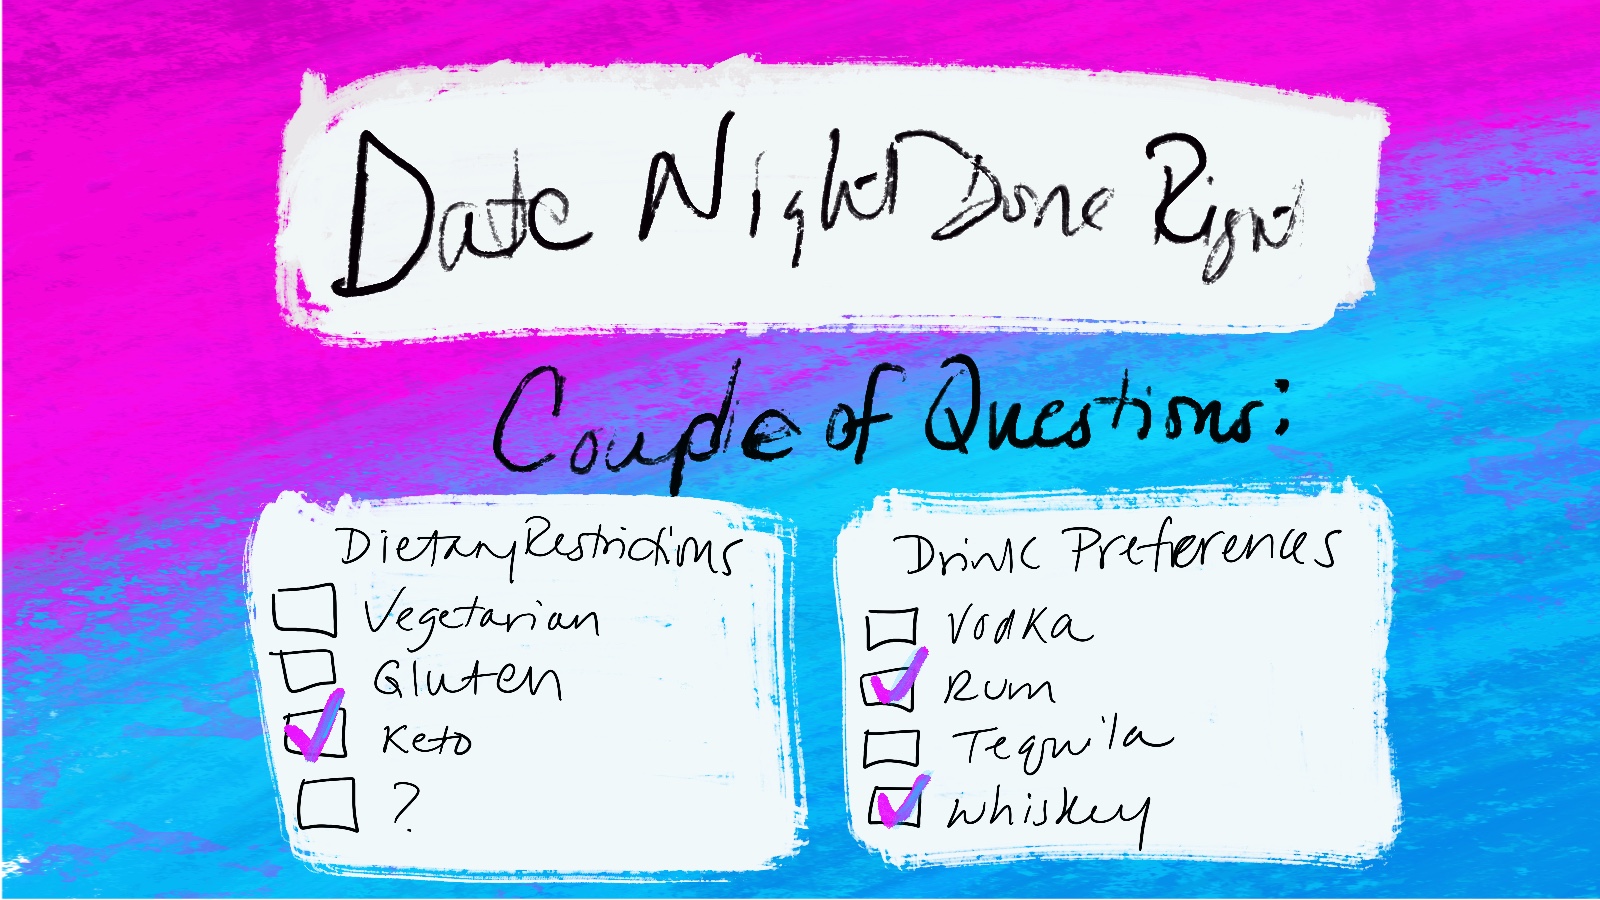 Date Night Done Right
Couple of Questions:
Dietary Restrictions
Vegetarian
Gluten
Keto
?
Drink Preferences
Vodka
Rum
Tequila
Whiskey